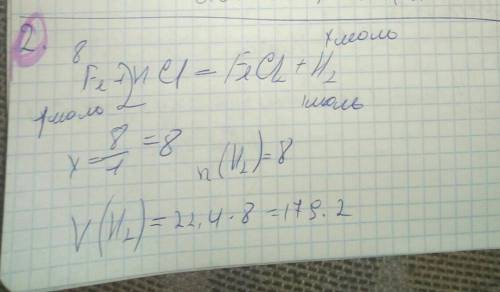 2.
8 x моль
Fe + 2HCl = FeCl2 + H2
1 моль 1 моль
x = 8/1 = 8 n(H2) = 8
V(H2) = 22,4 · 8 = 179.2